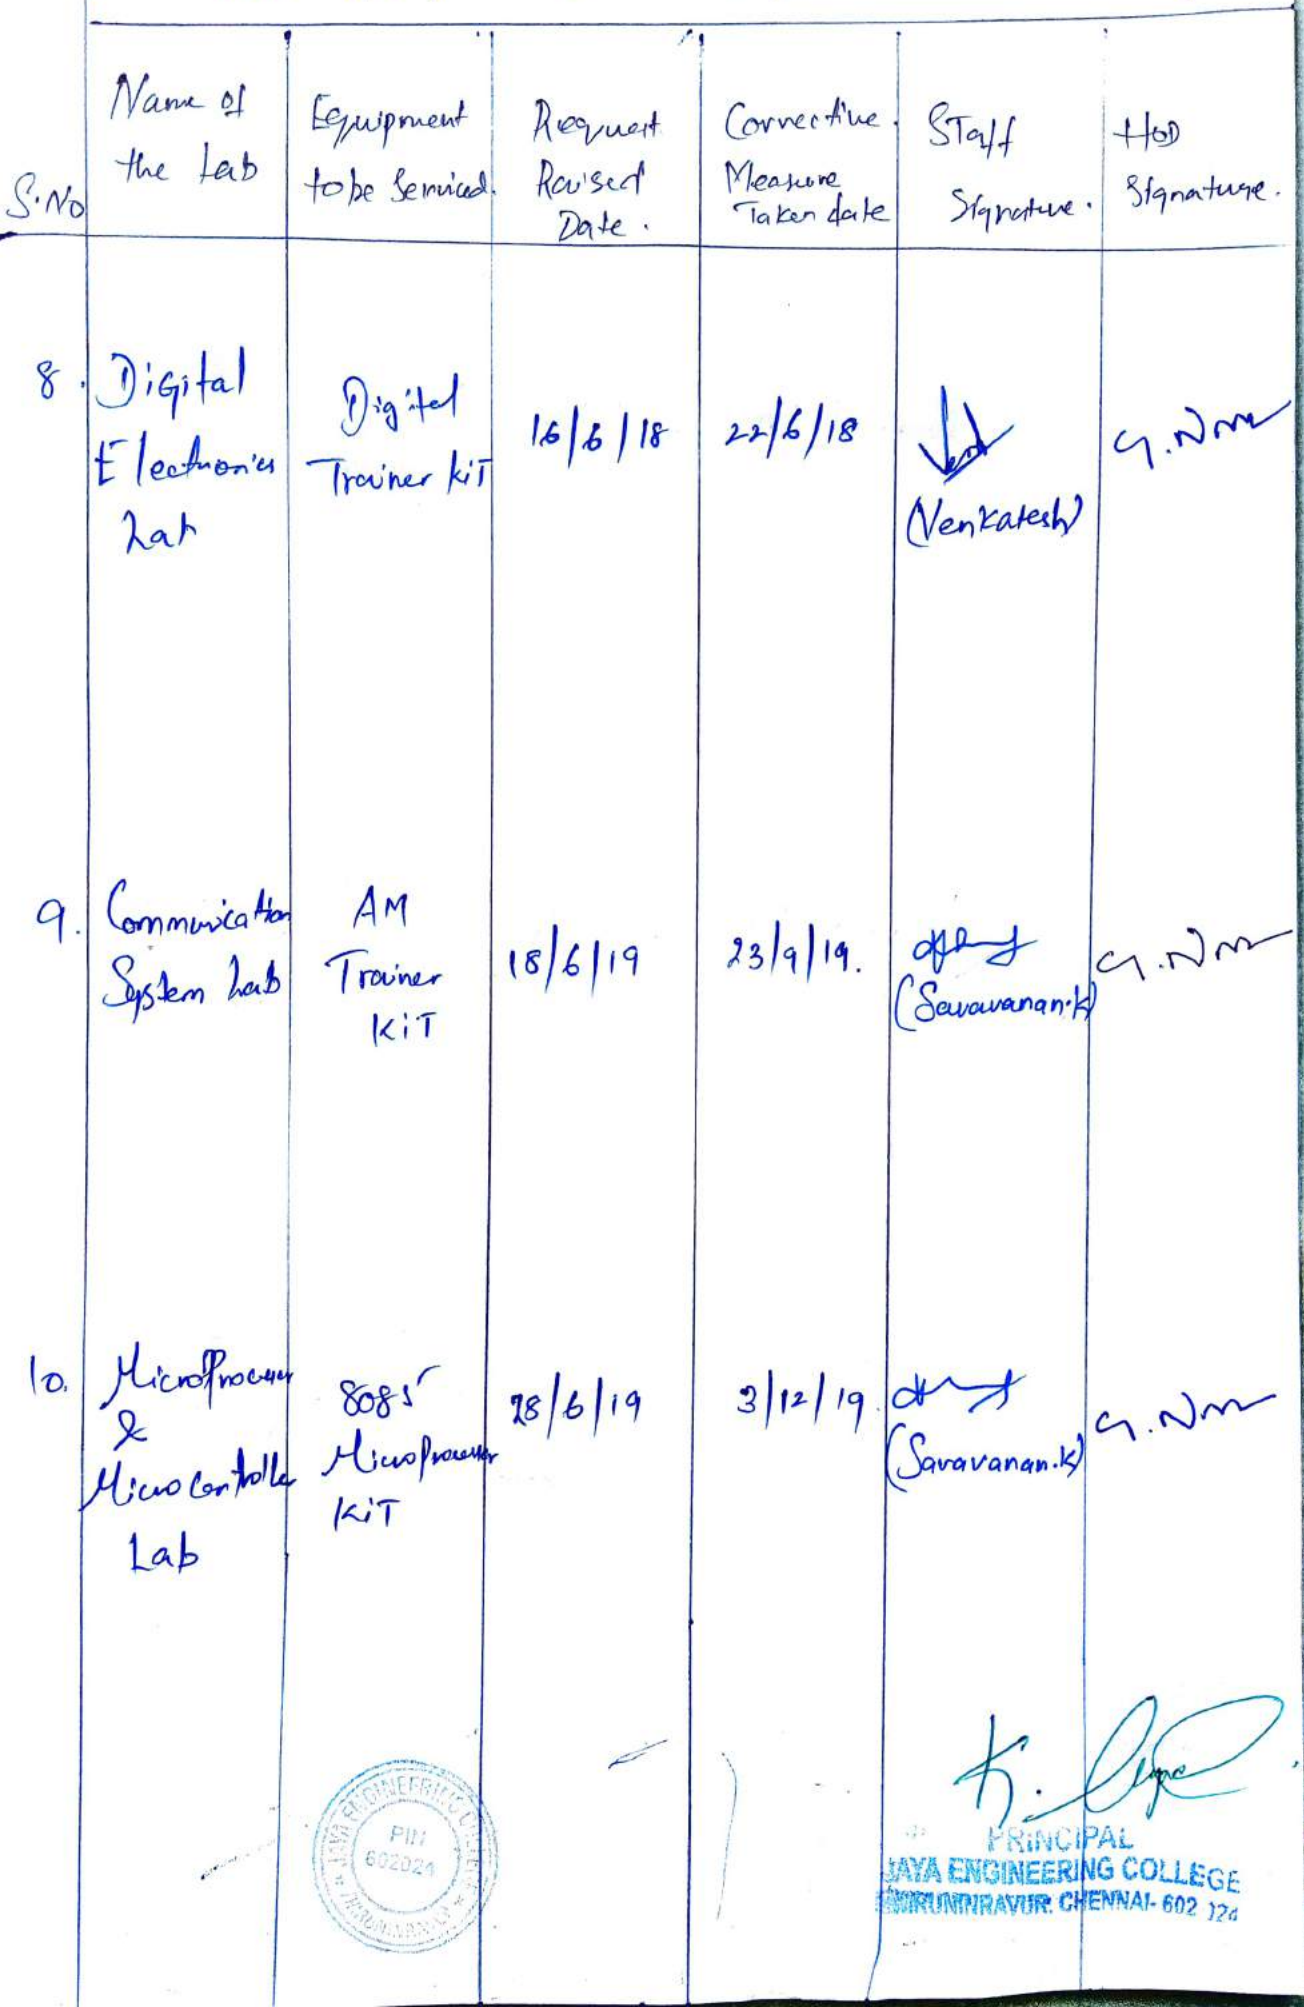 S.No
Name of
the Lab
Equipment
to be Serviced.
Request
Raised
Date.
Corrective
Measure
Taken date
Staff
Signature.
HOD
Signature.
8.
Digital
Electronics
Lab
Digital
Trainer KiT
16/6/18
22/6/18
(Venkatesh)
9.
Communication
System Lab
AM
Trainer
KiT
18/6/19
23/9/19.
(Saravanan.K)
10.
MicroProcessor
&
Microcontroller
Lab
8085
MicroProcessor
KiT
28/6/19
3/12/19.
(Saravanan.K)
JAYA ENGINEERING COLLEGE
PIN
602024
PRINCIPAL
JAYA ENGINEERING COLLEGE
THIRUNINRAVUR. CHENNAI- 602 024